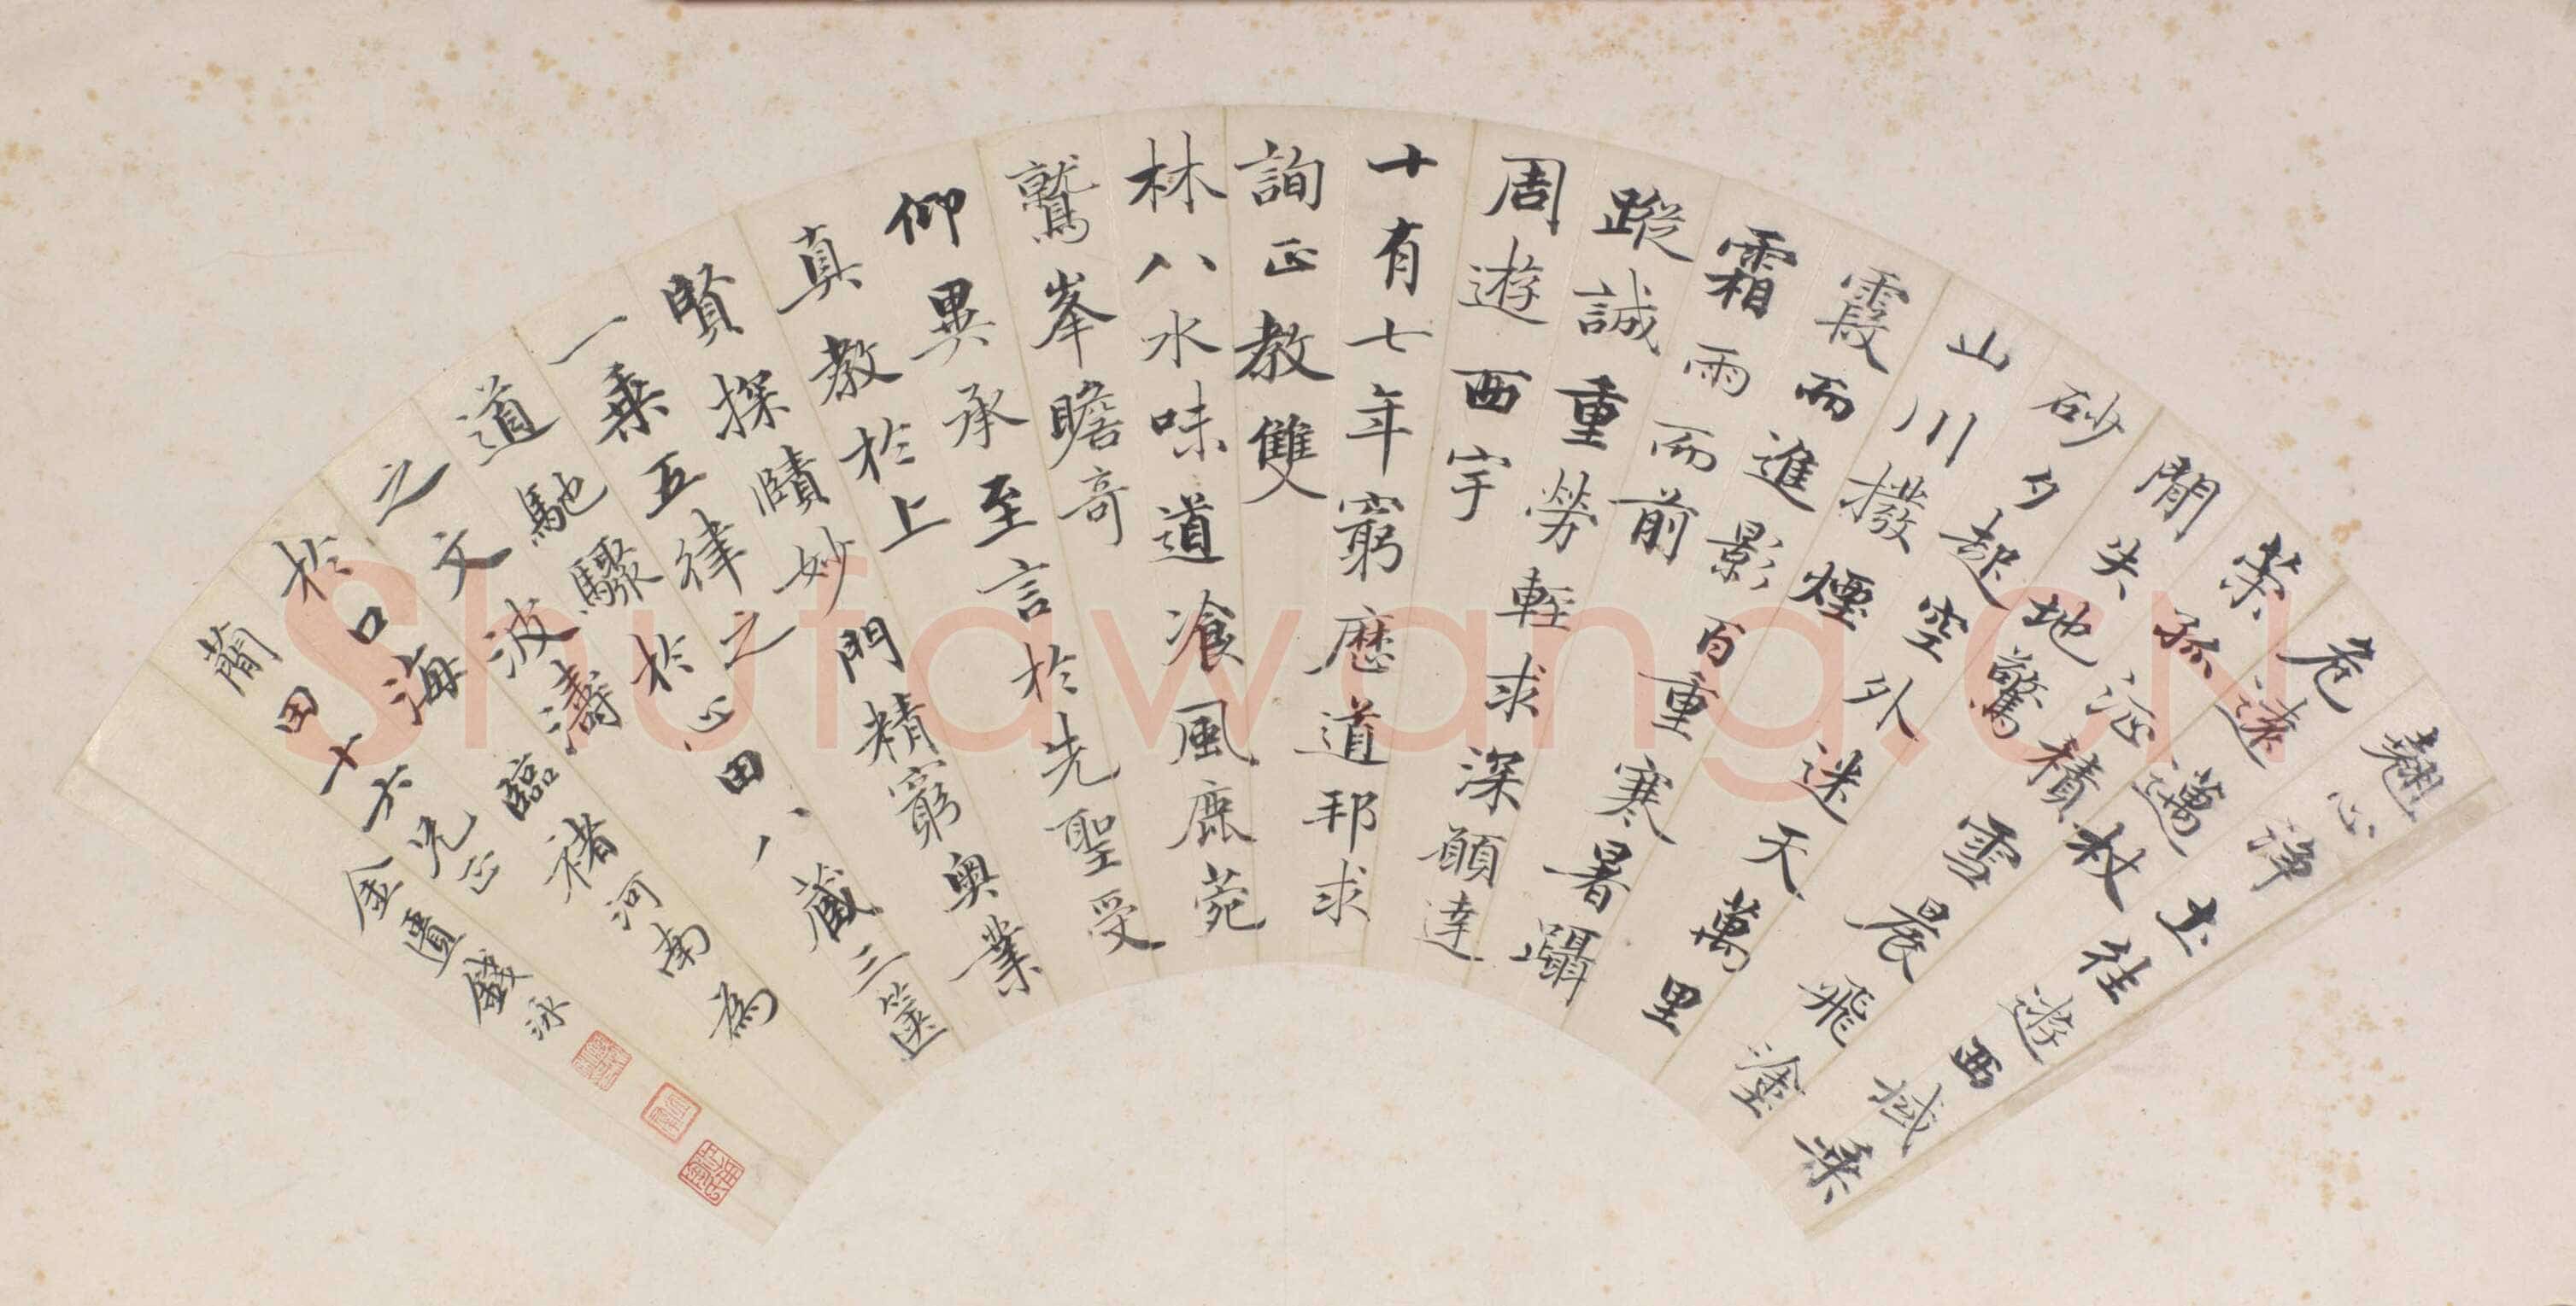 翹心淨土往遊西域乘
危遠邁杖
策孤征積雪晨飛塗
閒失地驚
砂夕起空外迷天萬里
山川撥煙
霞而進影百重寒暑躡
霜雨而前
蹤誠重勞輕求深願達
周遊西宇
十有七年窮歷道邦求
詢正教雙
林八水味道飡風鹿菀
鷲峯瞻奇
仰異承至言於先聖受
真教於上
賢探賾妙門精窮奧業
一乘五律之
道馳驟於心田八藏三篋
之文波濤
於口海臨褚河南為
蘭田十六兄正
金匱錢泳
Shufawang.CN